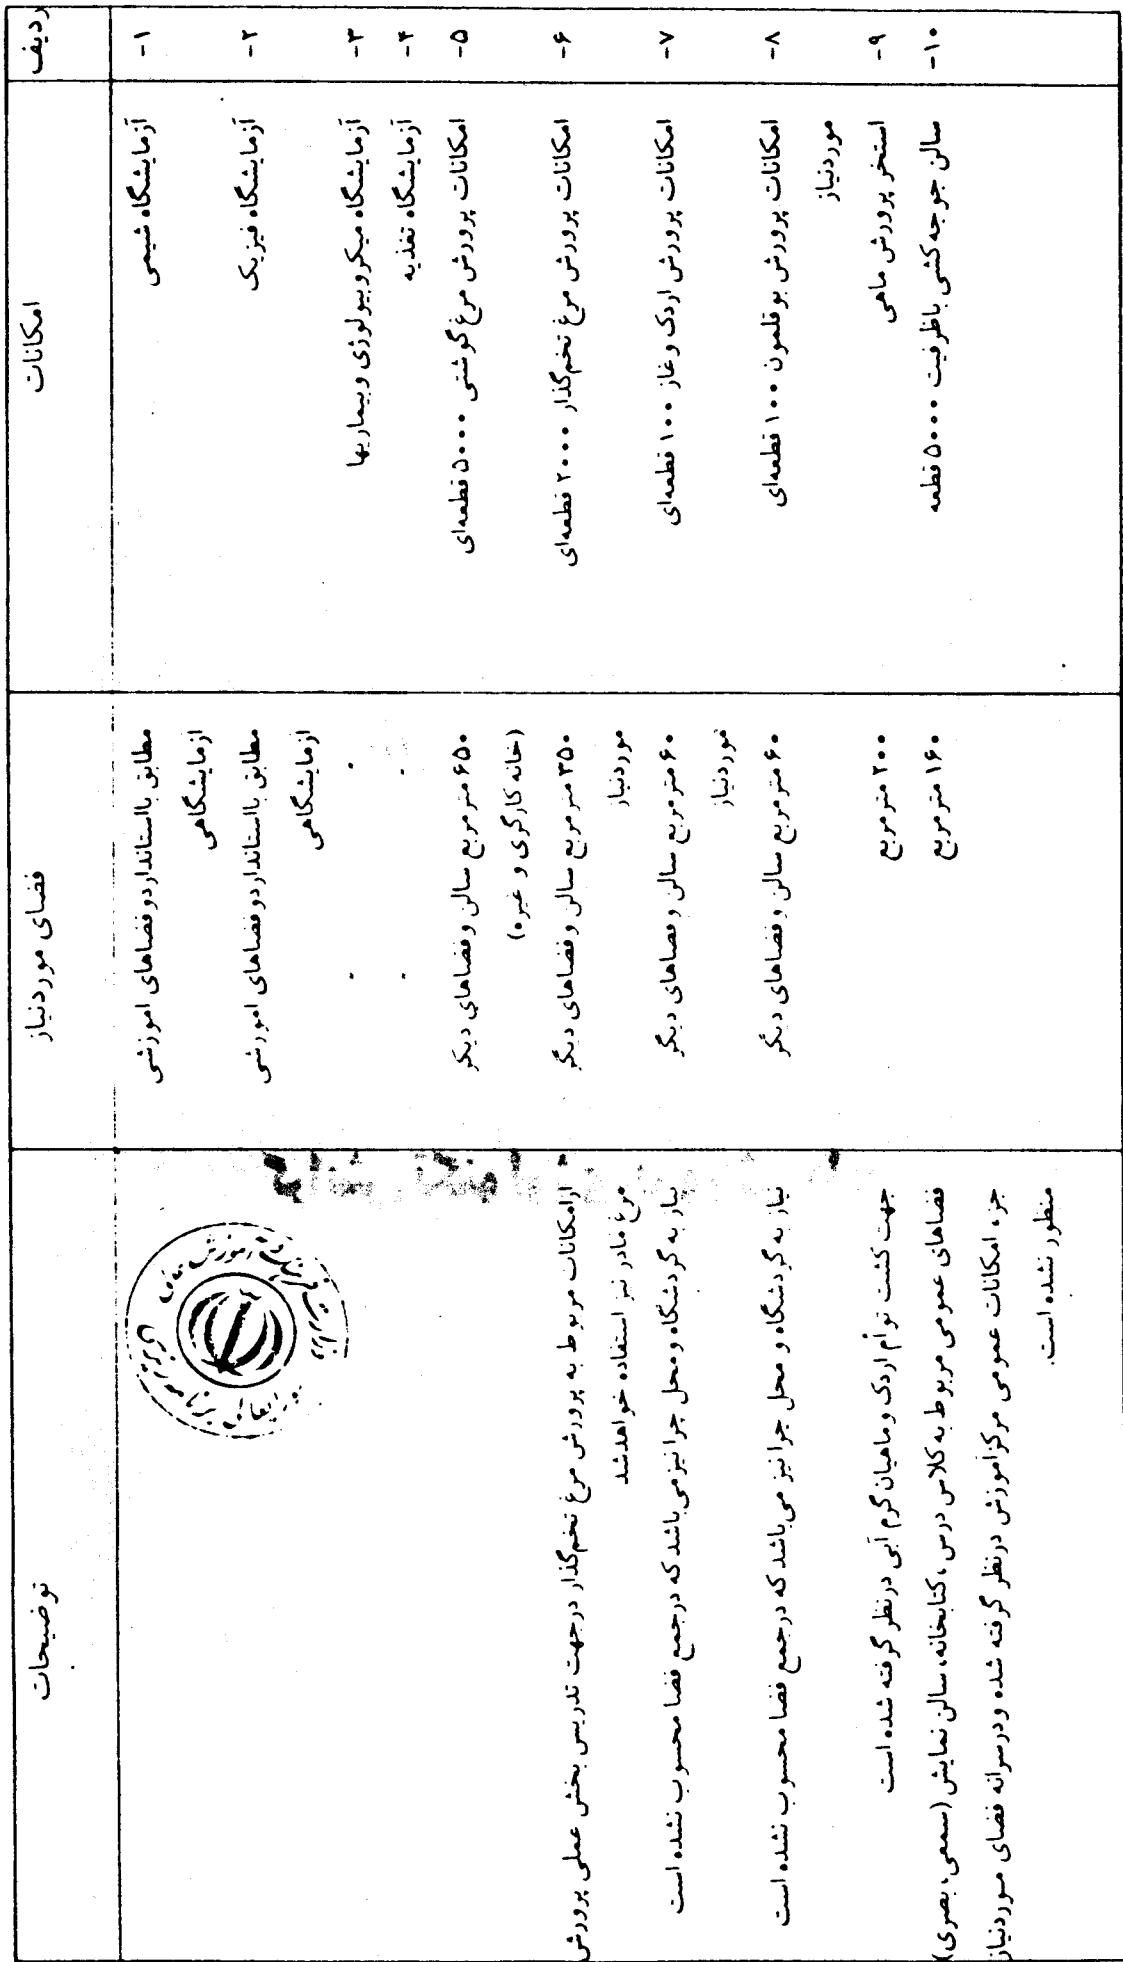 ردیف امکانات فضای موردنیاز توضیحات
۱- آزمایشگاه شیمی مطابق بااستانداردفضاهای اموزشی
ازمایشگاهی
۲- آزمایشگاه فیزیک مطابق بااستانداردفضاهای امورشی
ازمایشگاهی
۳- آزمایشگاه میکروبیولوژی وبیماریها
۴- آزمایشگاه تغذیه
۵- امکانات پرورش مرغ گوشتی ۵۰۰۰ قطعه‌ای ۶۵۰ مترمربع سالن وفضاهای دیگر
(خانه کارگری و غیره)
۶- امکانات پرورش مرغ تخم‌گذار ۲۰۰۰ قطعه‌ای ۳۵۰ مترمربع سالن وفضاهای دیگر ازامکانات مربوط به پرورش مرغ تخم‌گذار درجهت تدریس بخش عملی پرورش
موردنیاز مرغ مادر نیز استفاده خواهدشد
۷- امکانات پرورش اردک وغاز ۱۰۰ قطعه‌ای ۶۰ مترمربع سالن وفضاهای دیگر نیاز به گردشگاه ومحل چرا نیزمی‌باشد که درجمع فضا محسوب نشده است
موردنیاز
۸- امکانات پرورش بوقلمون ۱۰۰ قطعه‌ای ۶۰ مترمربع سالن وفضاهای دیگر نیاز به گردشگاه و محل چرا نیز می‌باشد که درجمع فضا محسوب نشده است
موردنیاز
۹- استخر پرورش ماهی ۲۰۰ مترمربع جهت کشت توأم اردک وماهیان گرم آبی درنظر گرفته شده است
۱۰- سالن جوجه کشی باظرفیت ۵۰۰۰ قطعه ۱۶۰ مترمربع فضاهای عمومی مربوط به کلاس درس، کتابخانه، سالن نمایش (سمعی، بصری)
جزء امکانات عمومی مرکزآموزش درنظر گرفته شده ودرسرانه فضای موردنیاز
منظور نشده است.